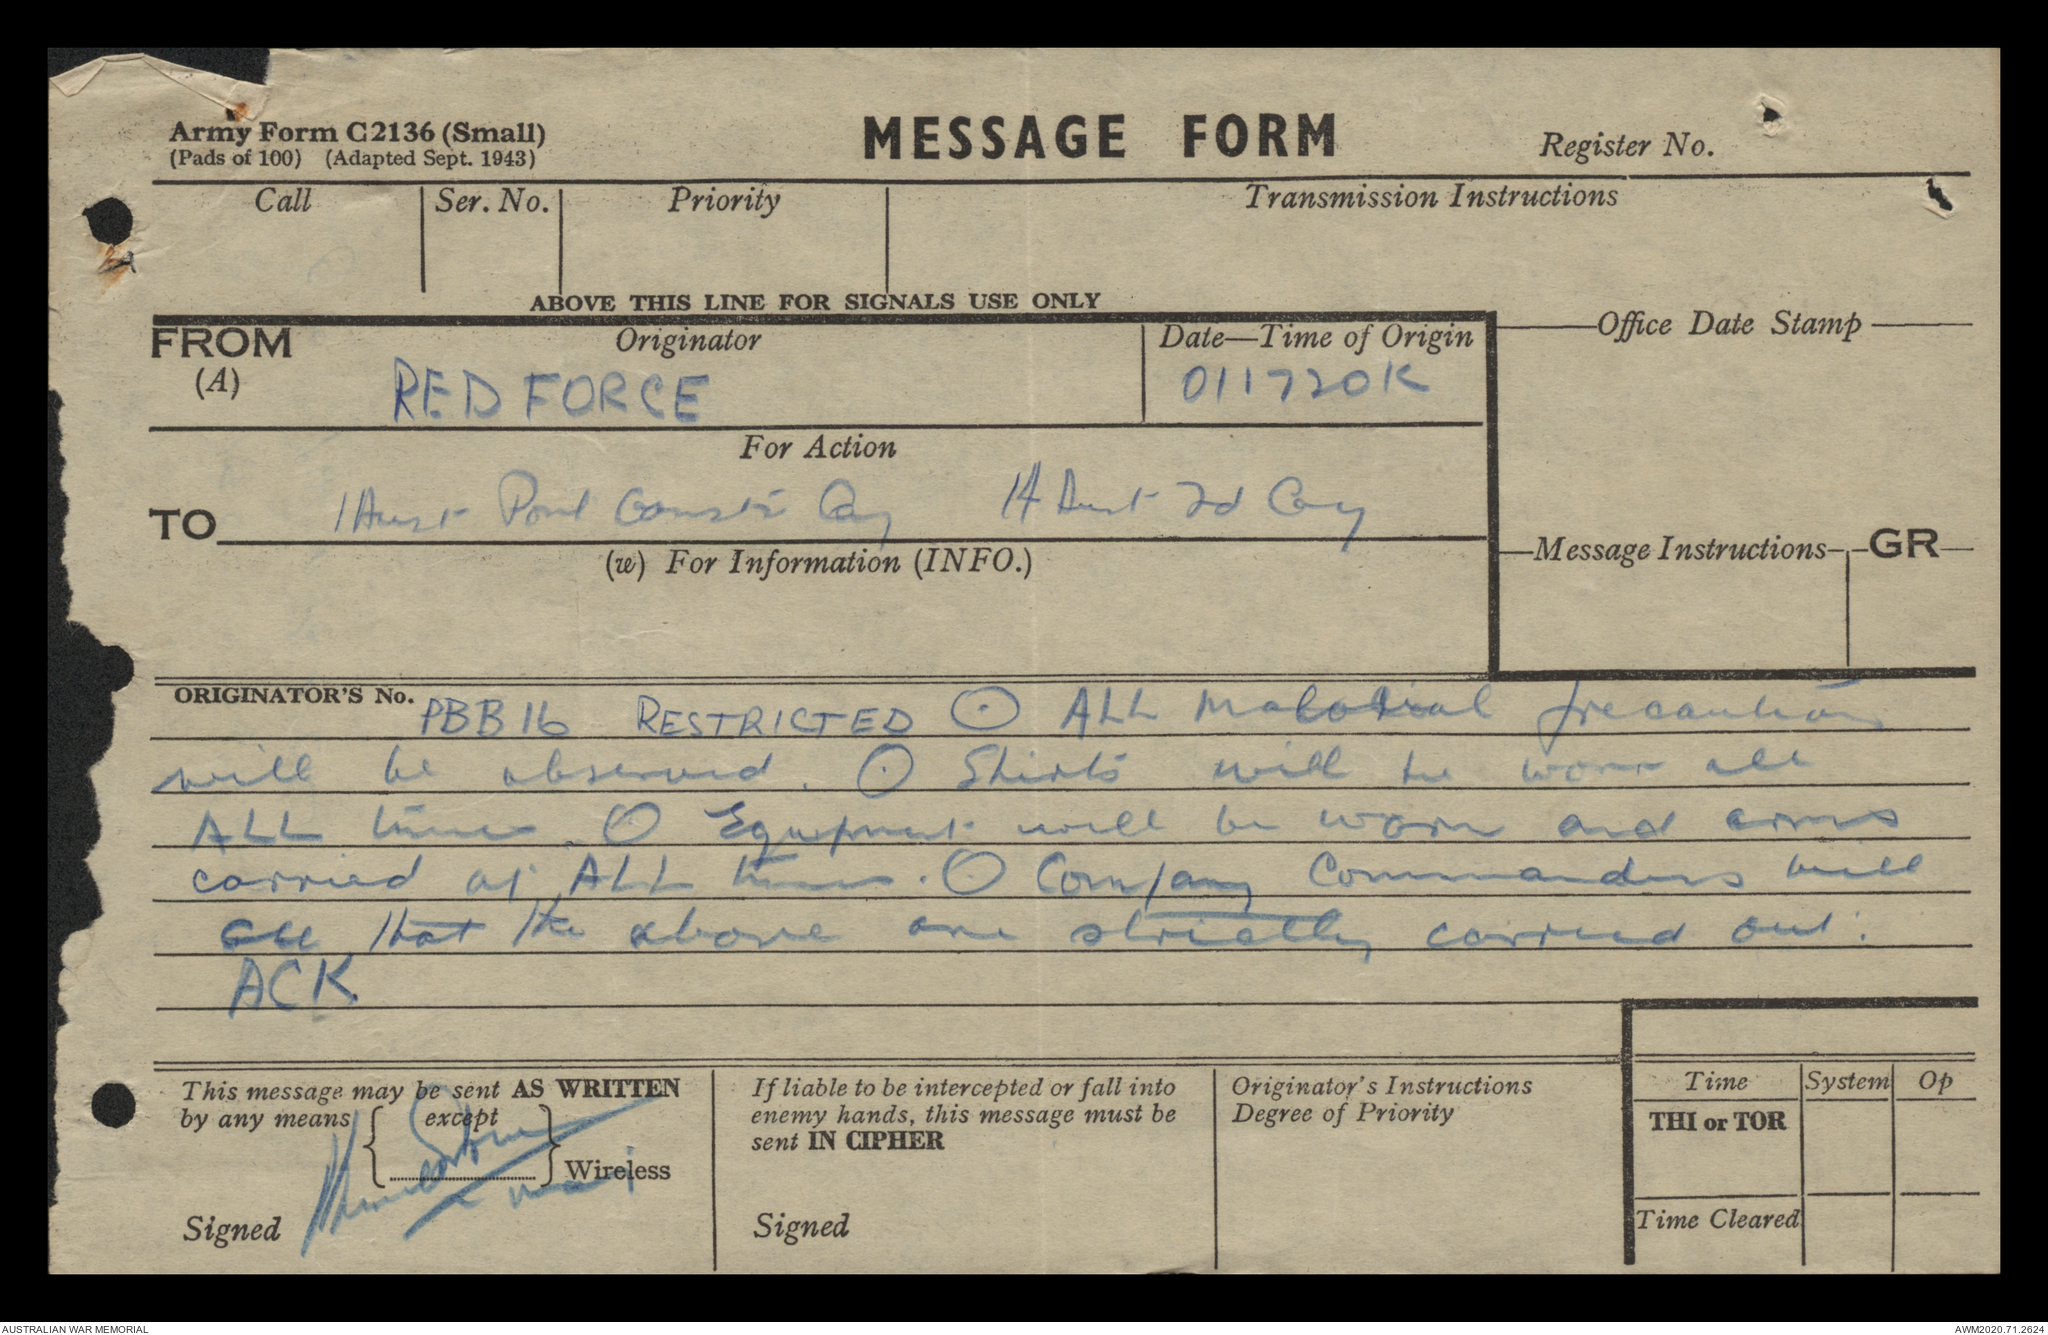 Army Form C2136 (Small)
(Pads of 100) (Adapted Sept. 1943)
MESSAGE FORM
Register No.
Call
Ser. No.
Priority
Transmission Instructions
ABOVE THIS LINE FOR SIGNALS USE ONLY
FROM
(A)
Originator
RED FORCE
Date—Time of Origin
011720K
Office Date Stamp
For Action
TO
1 Aust Port Constr Coy 14 Aust Fd Coy
(w) For Information (INFO.)
Message Instructions
GR
ORIGINATOR'S No.
PBB16 RESTRICTED ⊙ ALL Malarial precautions
will be observed. ⊙ Shirts will be worn all
ALL times. O Equipment will be worn and arms
carried at ALL times. ⊙ Company Commanders will
see that the above are strictly carried out.
ACK
This message may be sent AS WRITTEN
by any means
except
Wireless
Signed
If liable to be intercepted or fall into
enemy hands, this message must be
sent IN CIPHER
Signed
Originator's Instructions
Degree of Priority
Time
System
Op
THI or TOR
Time Cleared
AUSTRALIAN WAR MEMORIAL
AWM2020.71.2624